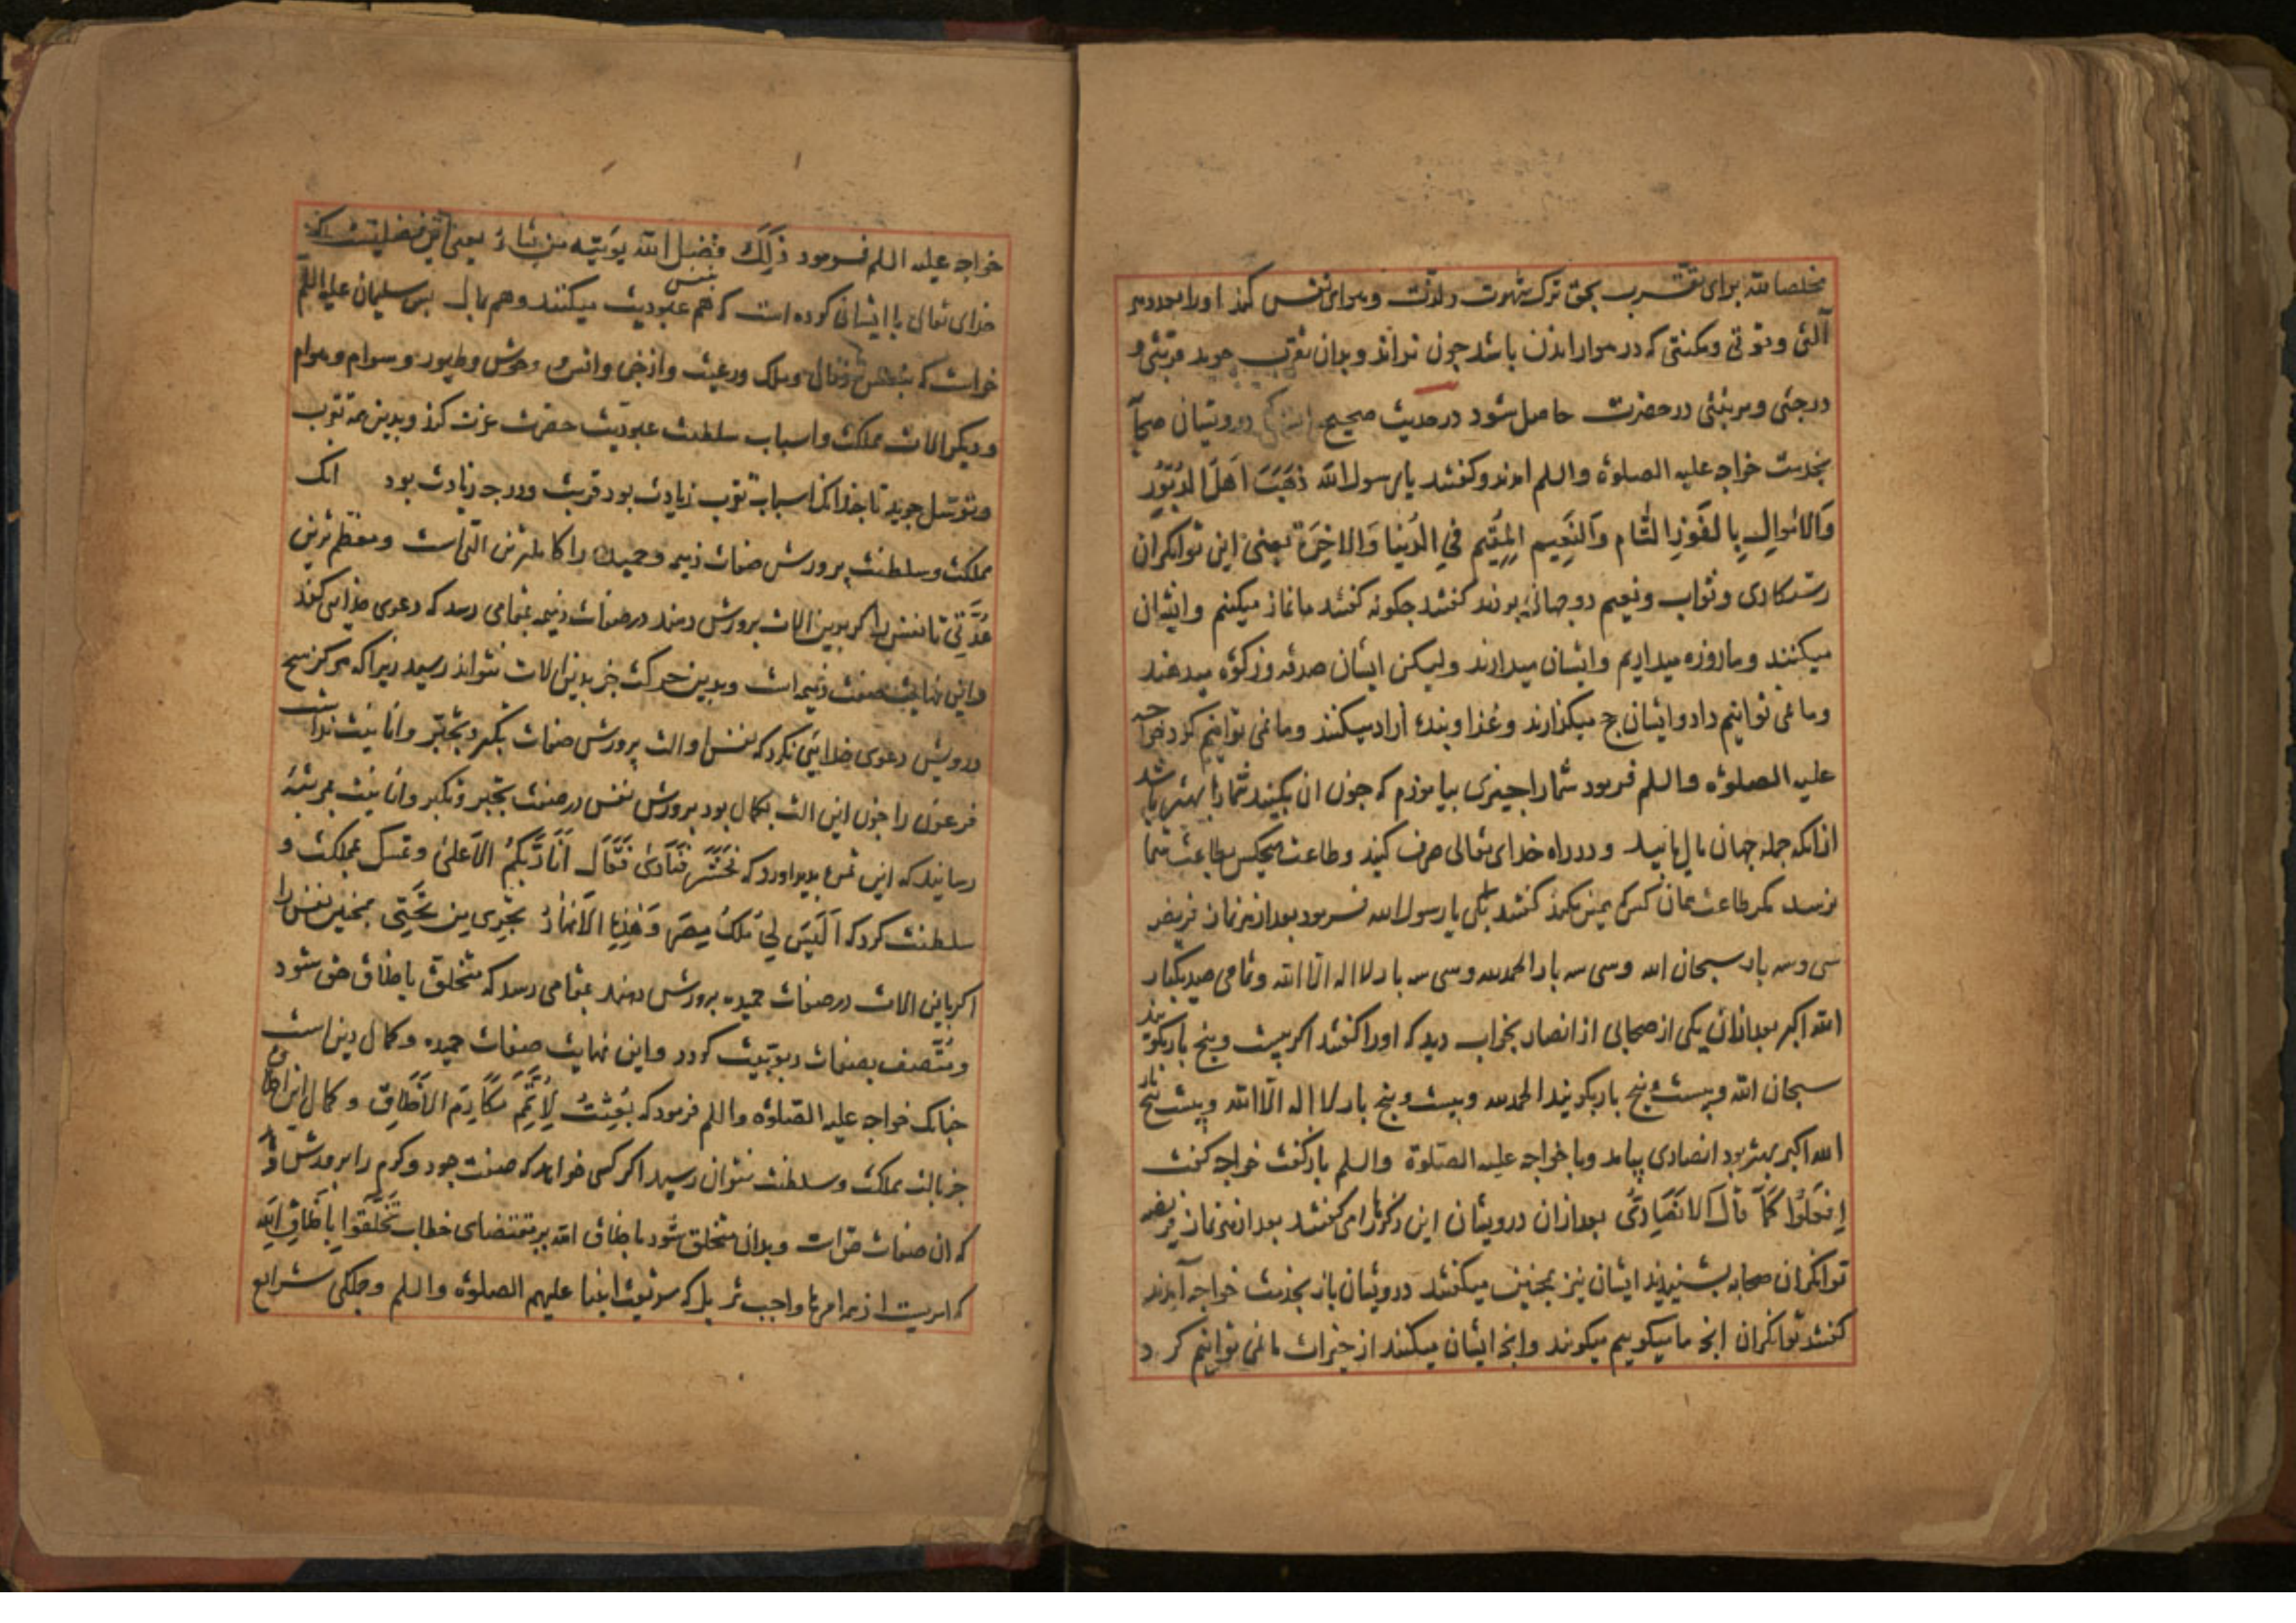 مخلصا لله برای تقرب بحق ترک شهوت ولذت وهوای نفس کند اورا بعدد هر
آلتی وقوتی ومکنتی که در هوا راندن باشد چون نراند وبدان تقرب جوید قربتی و
درجتی ومرتبتی در حضرت حاصل شود در حدیث صحیح درویشان صحا
بخدمت خواجه علیه الصلوة والسلم امدند وکفتند یا رسول الله ذَهَبَتَ اَهلُ الدُثُورِ
وَالاَموالِ بِالفَوزِ التَّام وَالنَعِیم المُقیم فِی الدُنیَا وَالاخِرَة یعنی این توانکران
رستکاری وثواب ونعیم دو جهانی بردند کفتند جکونه کفتند ما نماز میکنیم وایشان
میکنند وما روزه میداریم وایشان میدارند ولیکن ایشان صدقه وزکوة میدهند
وما نمی توانیم داد وایشان حج میکذارند وغذا وبنده ازاد میکنند وما نمی توانیم کرد خواجه
علیه الصلوة والسلم فرمود شما را جیزی بیاموزم که جون ان بکنید شما را بهتر باشد
ازانکه جمله جهان مال یابید ودر راه خدای تعالی صرف کنید وطاعت هیچکس بطاعت شما
نرسد مکر طاعت همان کس که همین بکند کفتند بلی یا رسول الله فرمود بعد از هر نماز فریضه
سی وسه بار سبحان الله وسی سه بار الحمد لله وسی سه بار لا اله الا الله وتمامی صد یکبار
الله اکبر بعد ازان یکی از صحابی از انصار بخواب دید که اورا کفتند اکر بیست وپنج بار بکویند
سبحان الله وبیست وپنج بار بکویند الحمد لله وبیست وپنج بار لا اله الا الله وبیست پنج بار
الله اکبر بهتر بود انصاری بیامد وبا خواجه علیه الصلوة والسلم باز کفت خواجه کفت
اِفعَلُوا کَمَا قَالَ الاَنصَارِیُ بعد ازان درویشان این ذکرها را می کفتند بعد از هر نماز فریضه
توانکران صحابه بشنیدند ایشان نیز همجنین میکفتند درویشان باز بخدمت خواجه آمدند
کفتند توانکران انچه ما میکوییم میکویند وانچه ایشان میکنند از خیرات ما نمی توانیم کرد
خواجه علیه السلم فرمود ذَلِکَ فضل الله یؤتیه من یشاء یعنی این فضلیست که
خدای تعالی با ایشان کرده است که هم بنفس عبودیت میکنند وهم بمال بس سلیمان علیه السلم
خواست که بنفس ومال وملک ورعیت واز جن وانس و وحوش وطیور وسوام وهوام
ودیکر الات مملکت واسباب سلطنت عبودیت حضرت عزت کند وبدین همه تقرب
وتوسل جوید تا جندانک اسباب تقرب زیادت بود قربت ودرجه زیادت بود انک
مملکت وسلطنت پرورش صفات ذمیمه وحمیده را کاملترین التی است ومعظم ترین
عُدَّتی تا نفس را اکر بدین الات پرورش دهند در صفات ذمیمه بمقامی رسد که دعوی خدایی کند
واین نهایت صفت ذمیمه است وبدین حرکت جز بدین الات نتواند رسید زیراکه هرکز هیچ
درویش دعوی خدایئی نکرد که نفس او الت پرورش صفات تکبر وتجبّر وانانیت نداشت
فرعون را جون این الت بکمال بود پرورش نفس در صفت تجبر وتکبر وانانیت بمرتبه
رسانید که این ثمره بدید اورد که فَحَشَرَ فَنَادَی فَقَالَ اَنَا رَبُّکُمُ الاَعلی وتمسک بمملکت و
سلطنت کرد که اَلَیسَ لِی مُلکُ مِصرَ وَهٰذِهِ الاَنهَارُ تَجرِی مِن تَحتِی همچنین نفس را
اکر باین الات در صفات حمیده پرورش دهند بمقامی رسد که متخلق باخلاق حق شود
ومُتَّصف بصفات ربوبیت کردد واین نهایت صفات حمیده وکمال دین است
جنانک خواجه علیه الصّلوة والسلم فرمود که بُعِثتُ لِاُتَمِّمَ مَکَارِمَ الاَخلَاقِ وکمال این اخلاق
جز بالت مملکت وسلطنت نتوان رسید اکر کسی خواهد که صفت جود وکرم را پرورش دهد
که ان صفات حق است وبدان متخلق شود باخلاق الله بر مقتضای خطاب تَخَلَّقُوا بِاَخلَاقِ اللهِ
که امریست از همه امرها واجب تر بل که سر بعثت انبیا علیهم الصلوة والسلم وجملکی شرایع